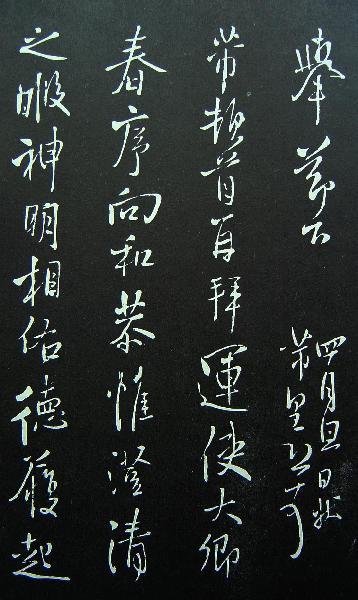 舉節下
四月旦日狀
芾皇恐
芾頓首再拜運使大卿
春序向和恭惟澄清
之暇神明相佑德履起